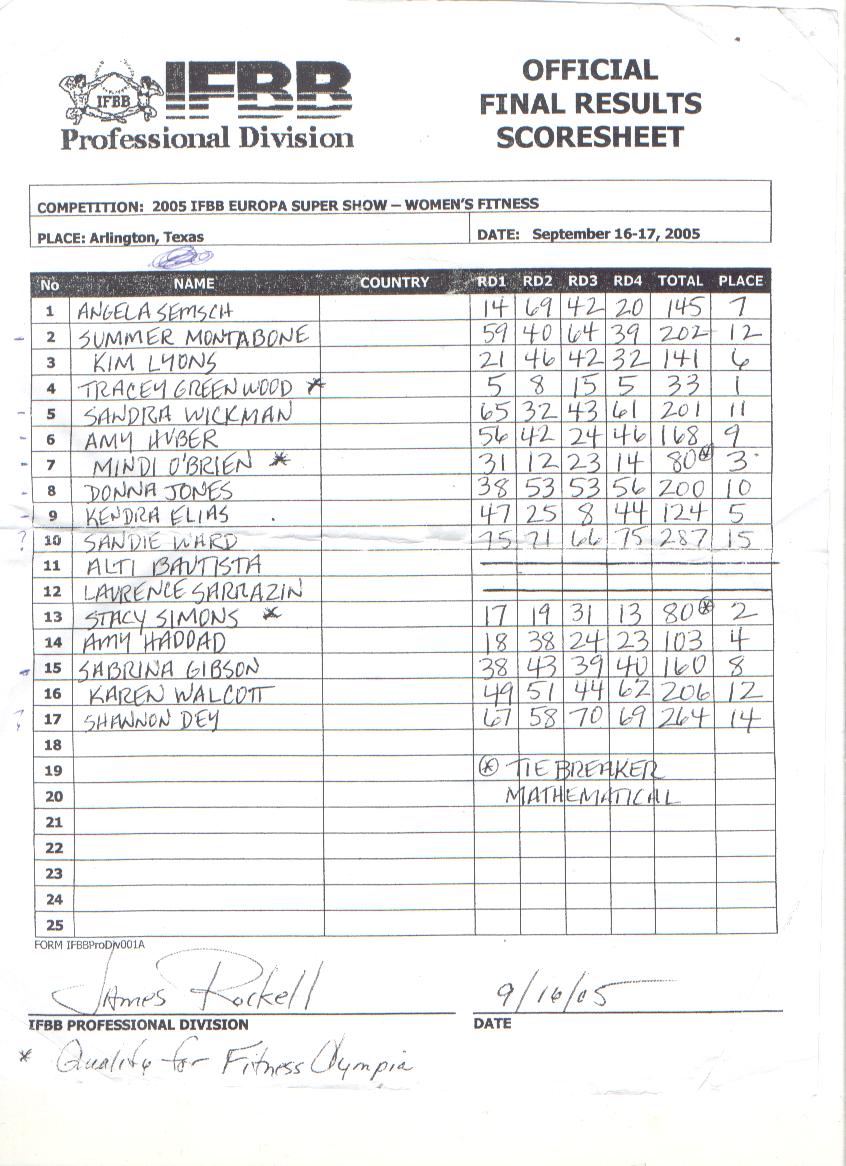 IFBB
IFBB
Professional Division
OFFICIAL
FINAL RESULTS
SCORESHEET
COMPETITION: 2005 IFBB EUROPA SUPER SHOW – WOMEN'S FITNESS
PLACE: Arlington, Texas DATE: September 16-17, 2005
No NAME COUNTRY RD1 RD2 RD3 RD4 TOTAL PLACE
1 ANGELA SEMSCH 14 69 42 20 145 7
- 2 SUMMER MONTABONE 59 40 64 39 202 12
3 KIM LYONS 21 46 42 32 141 6
4 TRACEY GREENWOOD * 5 8 15 5 33 1
- 5 SANDRA WICKMAN 65 32 43 61 201 11
- 6 AMY HUBER 56 42 24 46 168 9
- 7 MINDI O'BRIEN * 31 12 23 14 80 * 3
- 8 DONNA JONES 38 53 53 56 200 10
- 9 KENDRA ELIAS 47 25 8 44 124 5
? 10 SANDIE WARD 75 71 66 75 287 15
11 ALTI BAUTISTA
12 LAURENCE SARRAZIN
13 STACY SIMONS * 17 19 31 13 80 * 2
14 AMY HADDAD 18 38 24 23 103 4
- 15 SABRINA GIBSON 38 43 39 40 160 8
16 KAREN WALCOTT 49 51 44 62 206 12
? 17 SHANNON DEY 67 58 70 69 264 14
18
19 * TIE BREAKER
20 MATHEMATICAL
21
22
23
24
25
FORM IFBBProDiv001A
James Rockell 9/16/05
IFBB PROFESSIONAL DIVISION DATE
* Qualify for Fitness Olympia